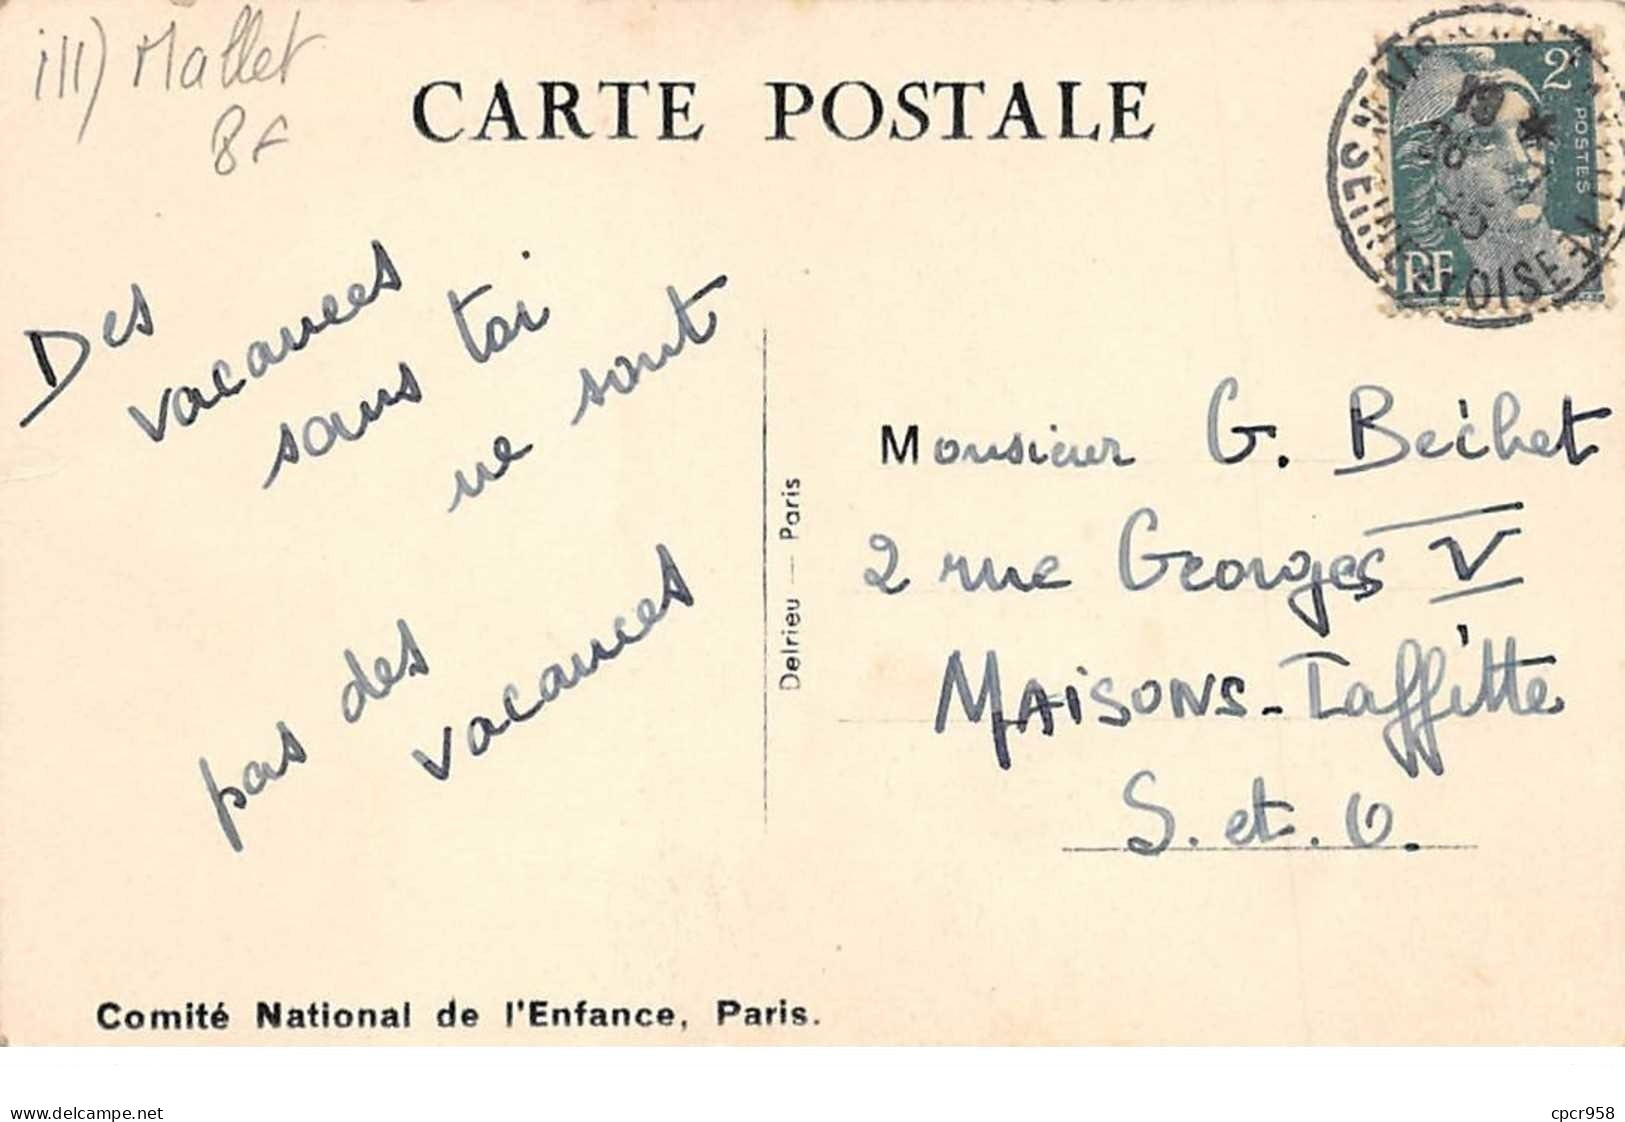 ill) Mallet
8F
CARTE POSTALE
2F
POSTES
RF
SEINE
OISE
Des
vacances
sans toi
ne sont
pas des
vacances
Delrieu — Paris
Monsieur G. Bechet
2 rue Georges V
MAISONS-Laffitte
S. et. O.
Comité National de l'Enfance, Paris.
delcampe.net
cpcr958